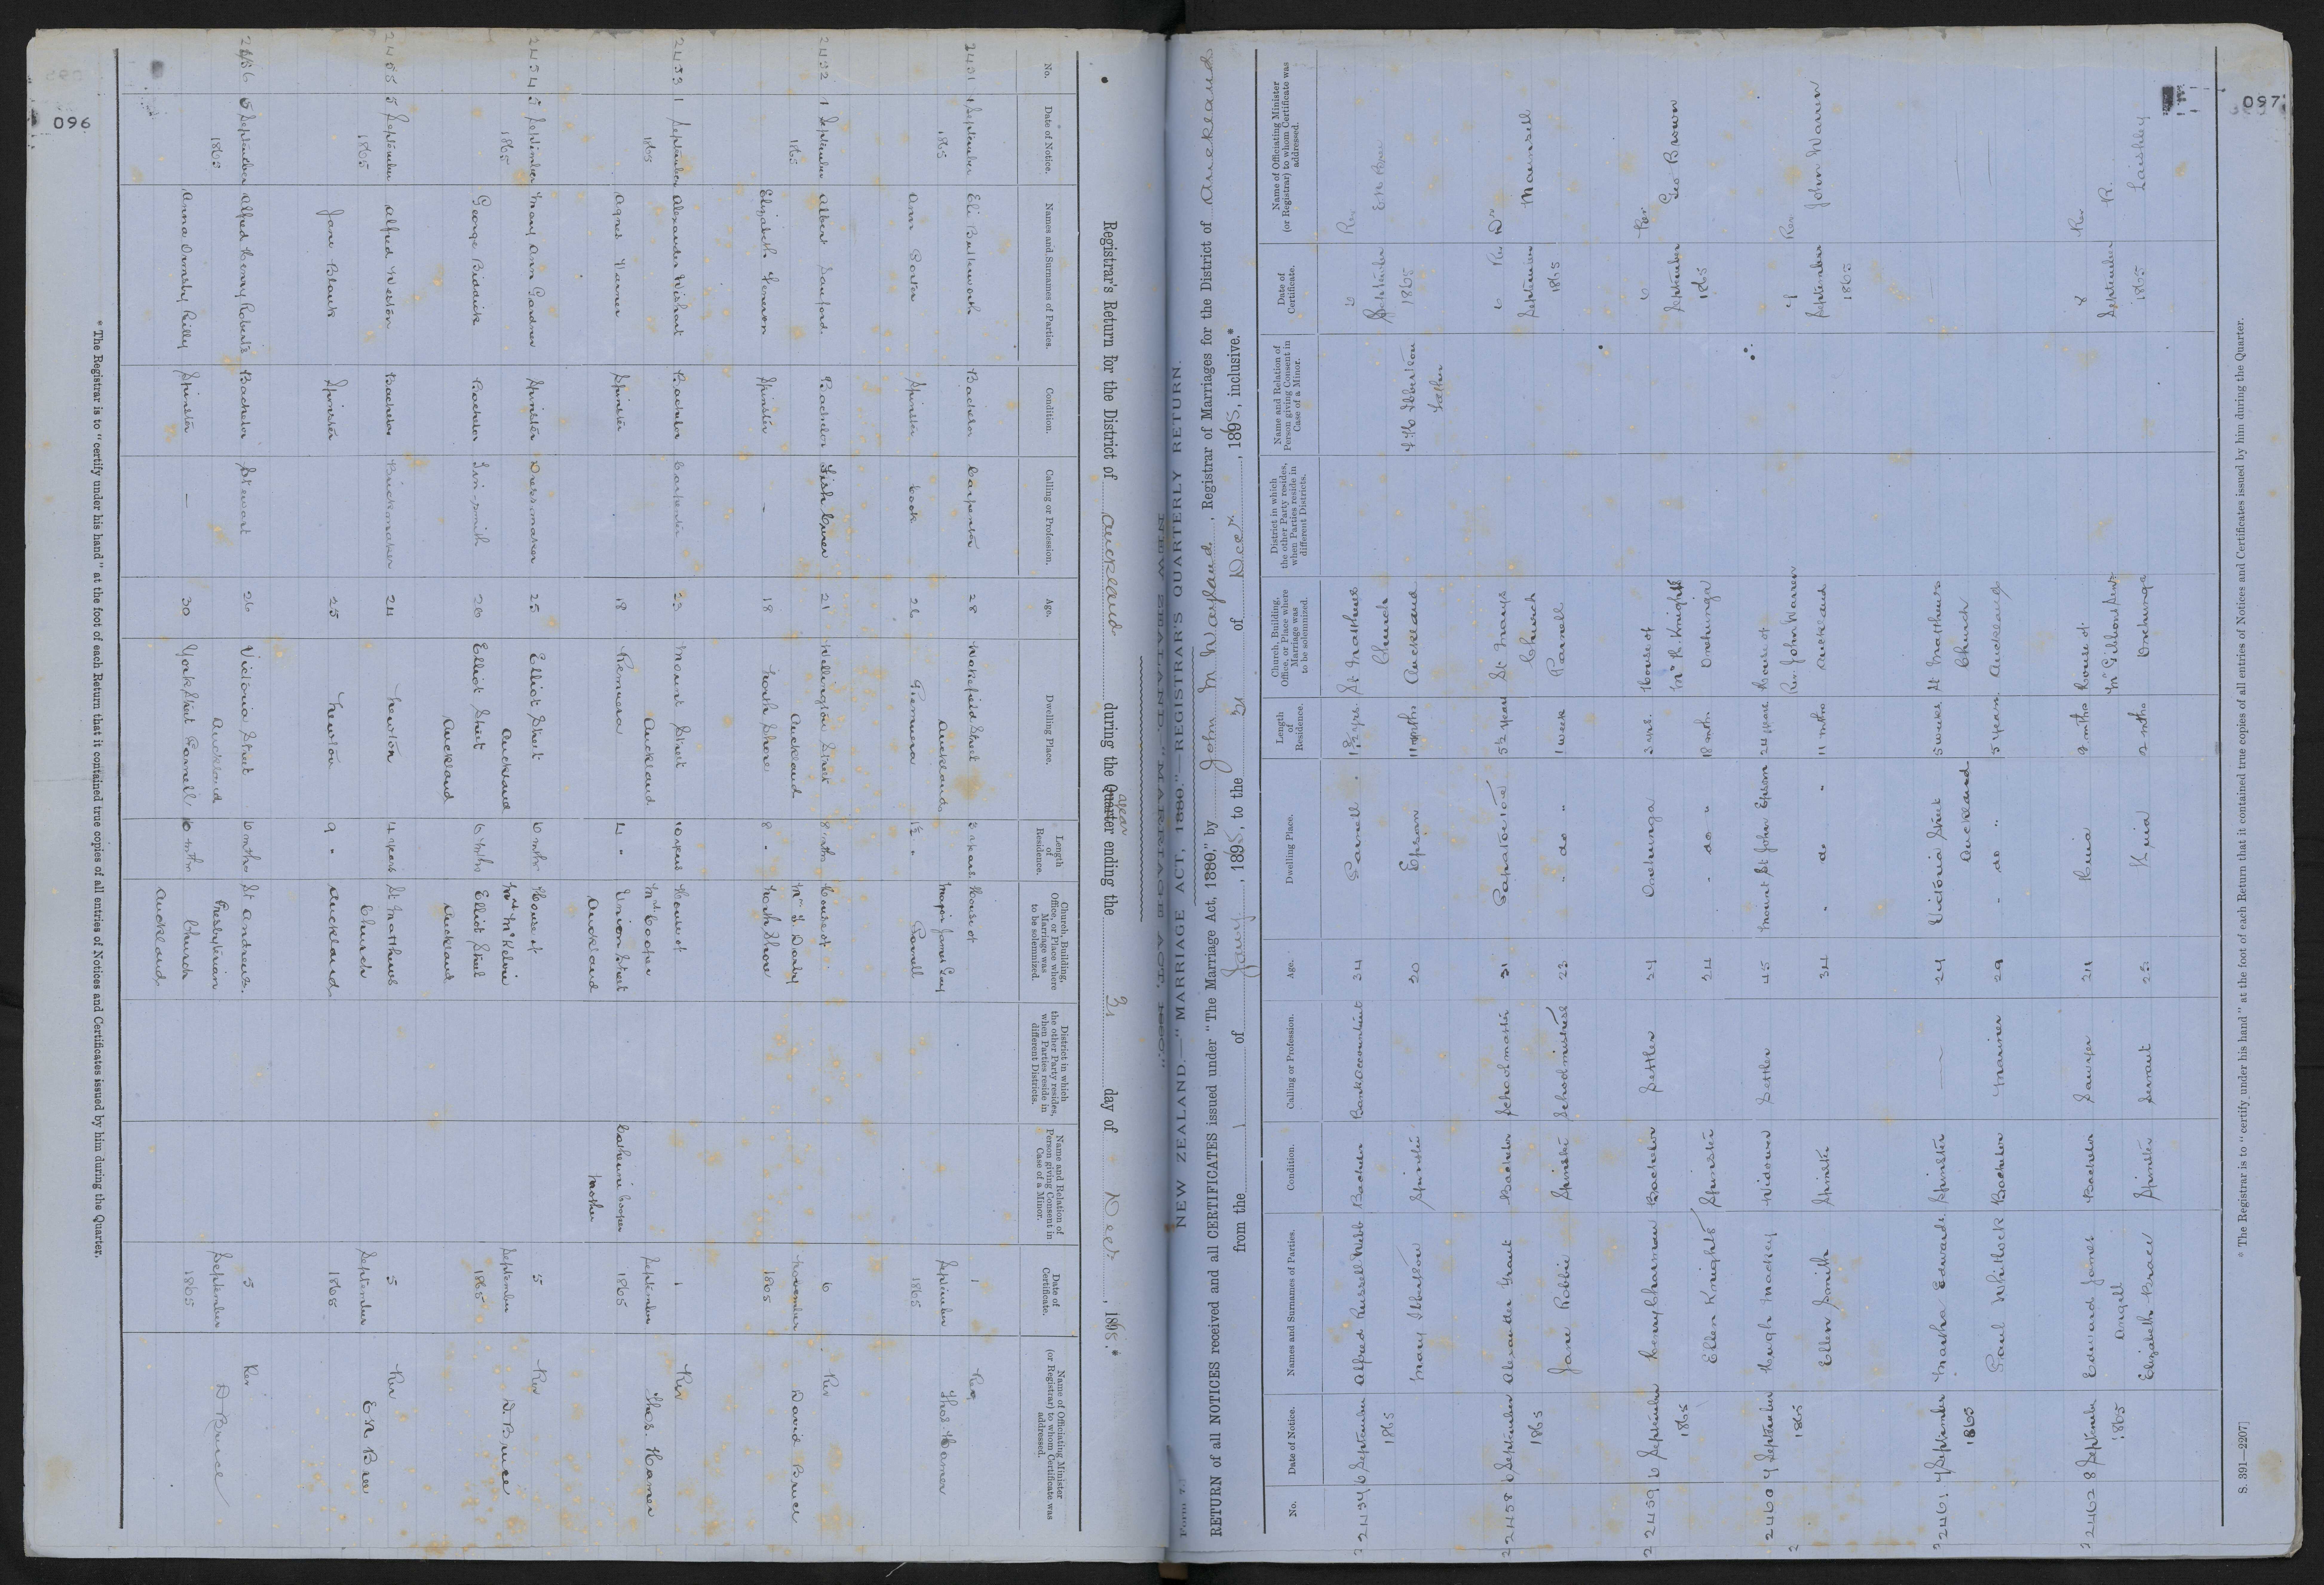 096
Registrar's Return for the District of Auckland during the Quarter year ending the 31 day of Decr, 1865.*
No.
Date of Notice.
Names and Surnames of Parties.
Condition.
Calling or Profession.
Age.
Dwelling Place.
Length of Residence.
Church, Building, Office, or Place where Marriage was to be solemnized.
District in which the other Party resides, when Parties reside in different Districts.
Name and Relation of Person giving Consent in Case of a Minor.
Date of Certificate.
Name of Officiating Minister (or Registrar) to whom Certificate was addressed.
2451 1 September Eli Butterworth Bachelor Carpenter 28 Wakefield Street 2 years House of 1 Rev
1865 Auckland Major James Gay September Thos Hamer
Ann Porter Spinster Cook 26 Remuera 1½ " Parnell 1865
2452 1 September Albert Sanford Bachelor Fish Curer 21 Wellington Street 8 mths House of 6 Rev
1865 Auckland Mr J. Darby November David Bruce
Elizabeth Spinster – 18 North Shore 8 " North Shore 1865
2453 1 September Alexander Wishart Bachelor 23 Mount Street 10 years House of 1 Rev
1865 Auckland Mrs Cooper September Thos. Hamer
Agnes Spinster 18 Remuera 4 " Union Street Catherine Cooper 1865
Auckland Mother
2454 5 September Mary Ann Gardner Spinster Dressmaker 25 Elliot Street 6 mths House of 5 Rev
1865 Auckland Mrs McKelvie September D. Bruce
George Biddick Bachelor Tin-smith 26 Elliot Street 6 mths Elliot Street 1865
Auckland Auckland
2455 5 September Alfred Weston Bachelor Brickmaker 24 Newton 4 years St Matthews 5 Rev
1865 Church September E N Bree
Jane Blank Spinster 25 Newton 9 " Auckland 1865
2456 5 September Alfred Henry Roberts Bachelor Stewart 26 Victoria Street 6 mths St Andrews 5 Rev
1865 Auckland Presbyterian September D Bruce
Anna Ormsby Reilly Spinster – 30 York Street Parnell 10 mths Church 1865
Auckland
* The Registrar is to "certify under his hand" at the foot of each Return that it contained true copies of all entries of Notices and Certificates issued by him during the Quarter.
097
Form 7.
NEW ZEALAND.—"MARRIAGE ACT, 1880."—REGISTRAR'S QUARTERLY RETURN.
RETURN of all NOTICES received and all CERTIFICATES issued under "The Marriage Act, 1880," by John M Wayland, Registrar of Marriages for the District of Auckland
from the 1 of Jany, 1865, to the 31 of Decr, 1865, inclusive.*
No.
Date of Notice.
Names and Surnames of Parties.
Condition.
Calling or Profession.
Age.
Dwelling Place.
Length of Residence.
Church, Building, Office, or Place where Marriage was to be solemnized.
District in which the other Party resides, when Parties reside in different Districts.
Name and Relation of Person giving Consent in Case of a Minor.
Date of Certificate.
Name of Officiating Minister (or Registrar) to whom Certificate was addressed.
2457 6 September Alfred Russell Webb Bachelor Bank Accountant 34 Parnell 1½ yrs. St Matthews 6 Rev
1865 Church September E N Bree
Mary Ibbertson Spinster 20 Epsom 11 mths Auckland Ibbertson 1865
Father
2458 6 September Alexander Grant Bachelor Schoolmaster 31 Papatoitoi 5½ years St Marys 6 Rev Dr
1865 Church September Maunsell
Jane Robbie Spinster Schoolmistress 23 " do " 1 week Parnell 1865
2459 6 September Henry Charman Bachelor Settler 24 Onehunga 3 yrs. House of 6 Rev
1865 Mr R. Knights September Geo Brown
Ellen Knights Spinster 24 " do " 18 mths Onehunga 1865
2460 7 September Hugh Mackey Widower Settler 45 Mount St John Epsom 24 years House of 7 Rev
1865 Rev. John Warren September John Warren
Ellen Smith Spinster 34 " do " 11 mths Auckland 1865
2461 7 September Martha Edwards Spinster — 24 Victoria Street 5 weeks St Matthews —
1865 Auckland Church
Paul Whitlock Bachelor Mariner 29 " do " 5 years Auckland
2462 8 September Edward James Bachelor Sawyer 24 Huia 9 mths House of 8 Rev
1865 Angell Mr Gibbons Senr September R. Laishley
Elizabeth Brace Spinster Servant 23 Huia 2 mths Onehunga 1865
* The Registrar is to "certify under his hand" at the foot of each Return that it contained true copies of all entries of Notices and Certificates issued by him during the Quarter.
S. 391—2207]